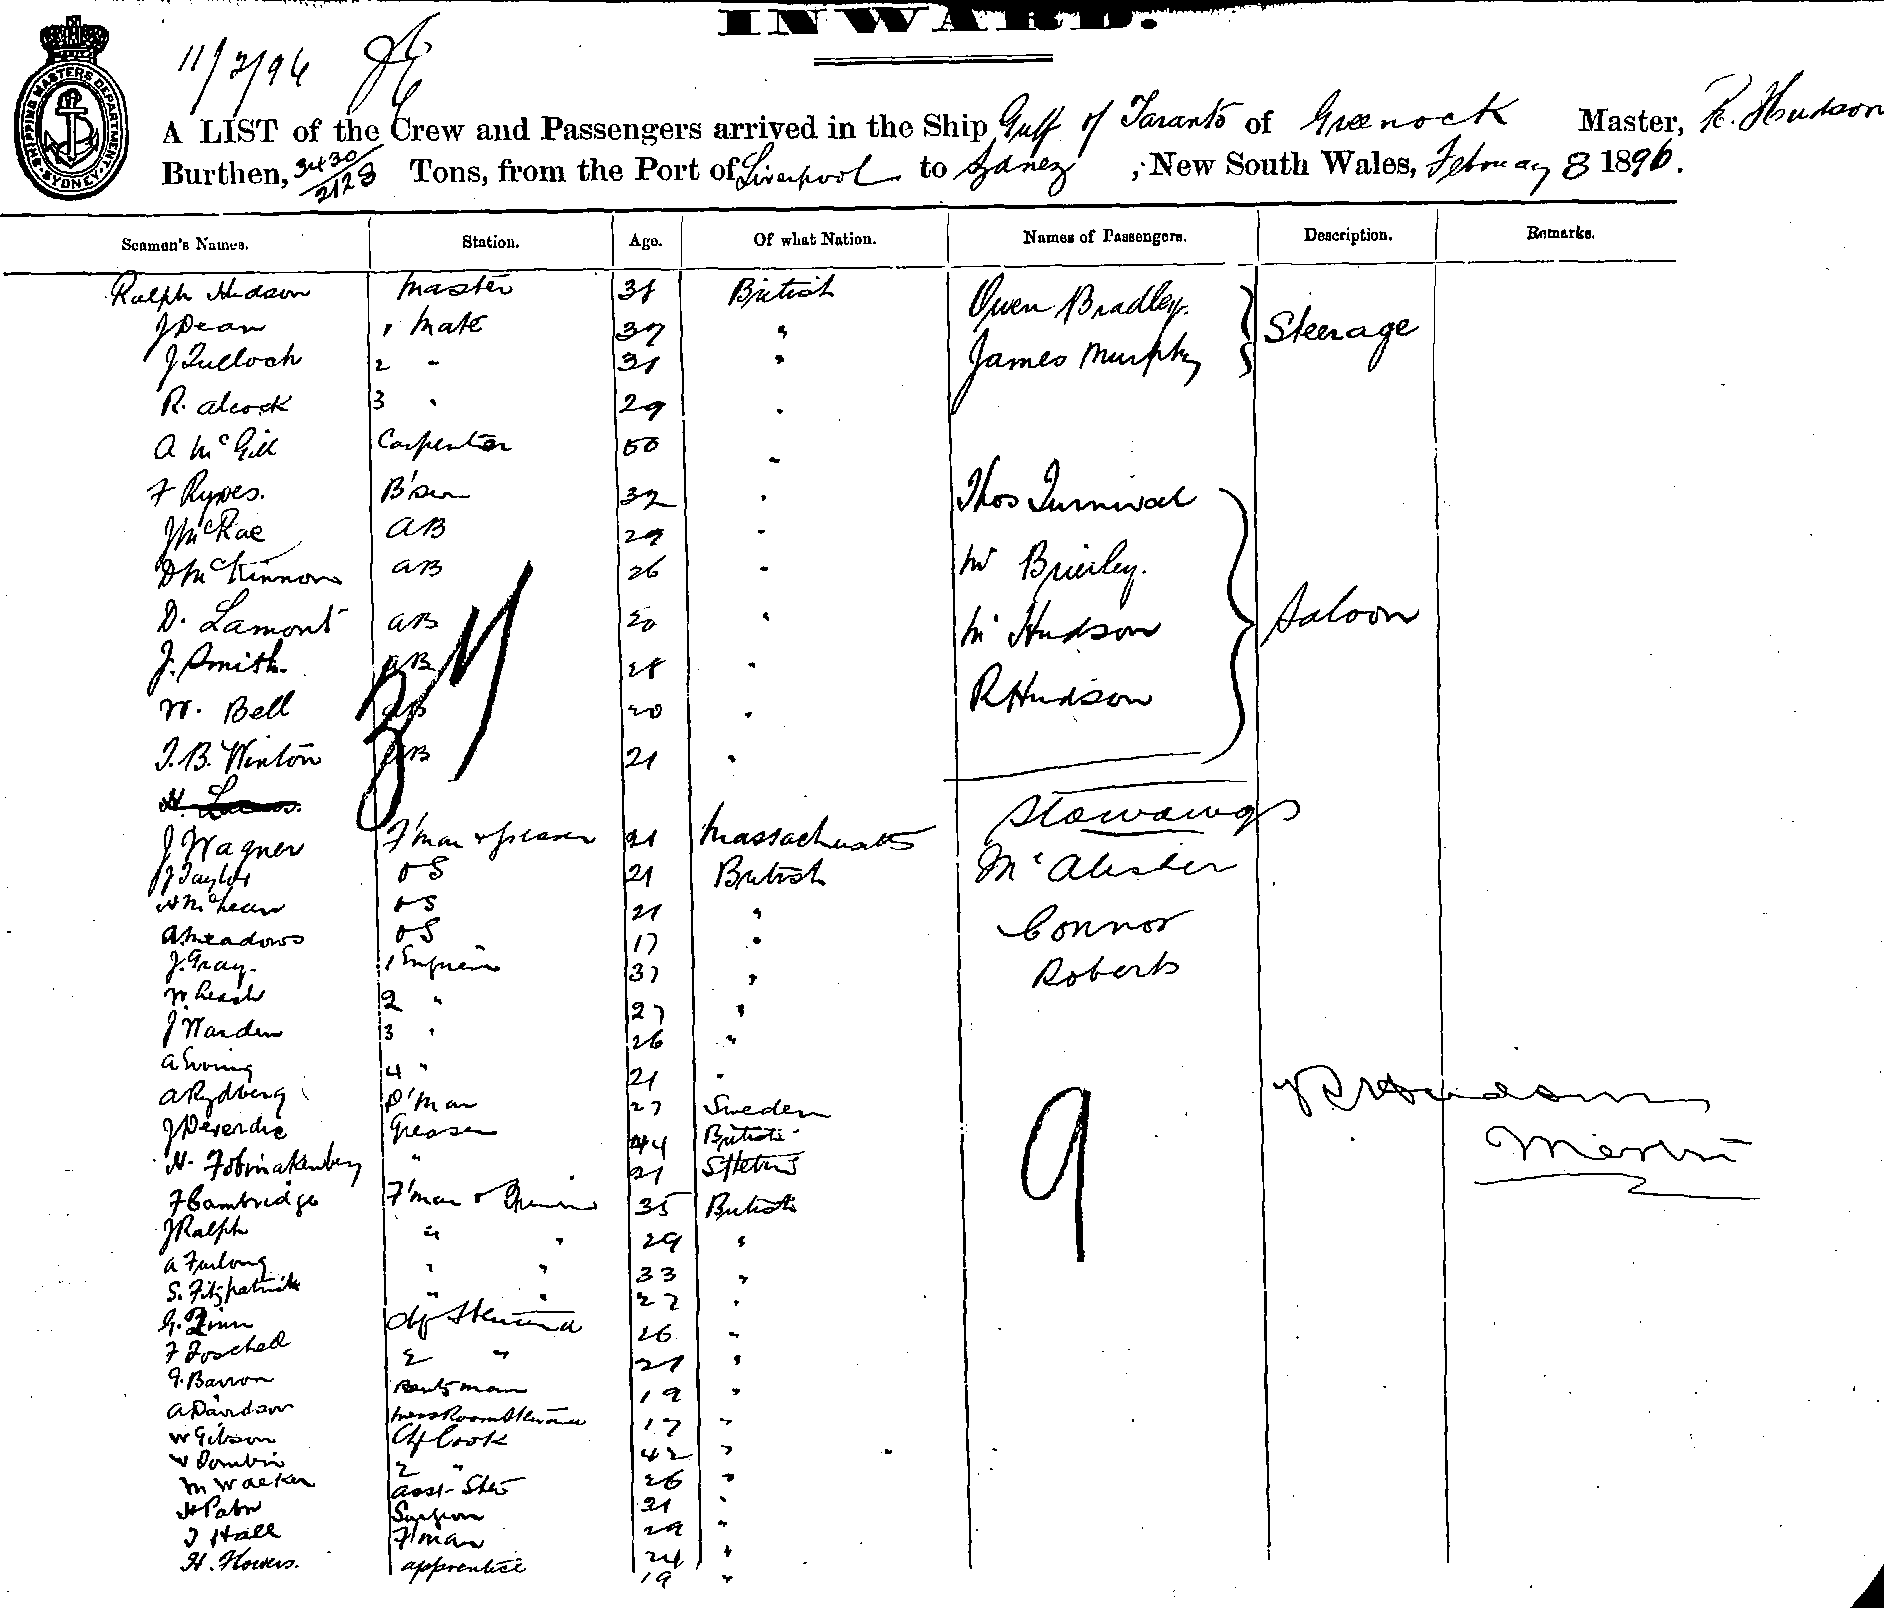 INWARD.
SHIPPING MASTERS DEPARTMENT SYDNEY
11/2/96
A LIST of the Crew and Passengers arrived in the Ship Gulf of Taranto of Greenock Master, R. Hudson
Burthen, 3430/2123 Tons, from the Port of Liverpool to Sydney, New South Wales, February 8 1896.
Seamen's Names. Station. Age. Of what Nation. Names of Passengers. Description. Remarks.
Ralph Hudson Master 38 British Owen Bradley.
J Dean 1 Mate 37 " Steerage
J Tulloch 2 " 31 " James Murphy
R. Alcock 3 " 29 "
A McGill Carpenter 50 "
F Rypes. B'sun 32 " Thos Turnival
J McRae AB 29 "
D McKinnon AB 26 " Mr Brierley.
D. Lamont AB 20 " Mr Hudson Saloon
J. Smith. AB 28 "
W. Bell AB 20 " R Hudson
J. B. Winton AB 21 "
37
Stowaways
J Wagner F'man & greaser 21 Massachusetts
J Taylor OS 21 British McAlister
A McLean OS 21 "
A Meadows OS 17 " Connor
J. Gray. 1 Engineer 37 " Roberts
W Leash 2 " 27 "
J Warden 3 " 26 "
A Ewing 4 " 21 "
A Rydberg D'Man 27 Sweden R Hudson
J Deverdie Greaser 44 British Master
H. " 21
F Cambridge F'man & 35 British 9
J Ralph " " 29 "
A Furlong " " 33 "
S. Fitzpatrick " " 27 "
G. Quinn Chf Steward 26 "
F Foschell 2 " 21 "
J. Barron 19 "
A Davidson Mess Room Steward 17 "
W Gibson Chf Cook 42 "
W Dombin 2 " 26 "
M Walker Asst- Std 21 "
H Pabr Surgeon 29 "
J Hall F'man 24 "
H. Flowers. apprentice 19 "